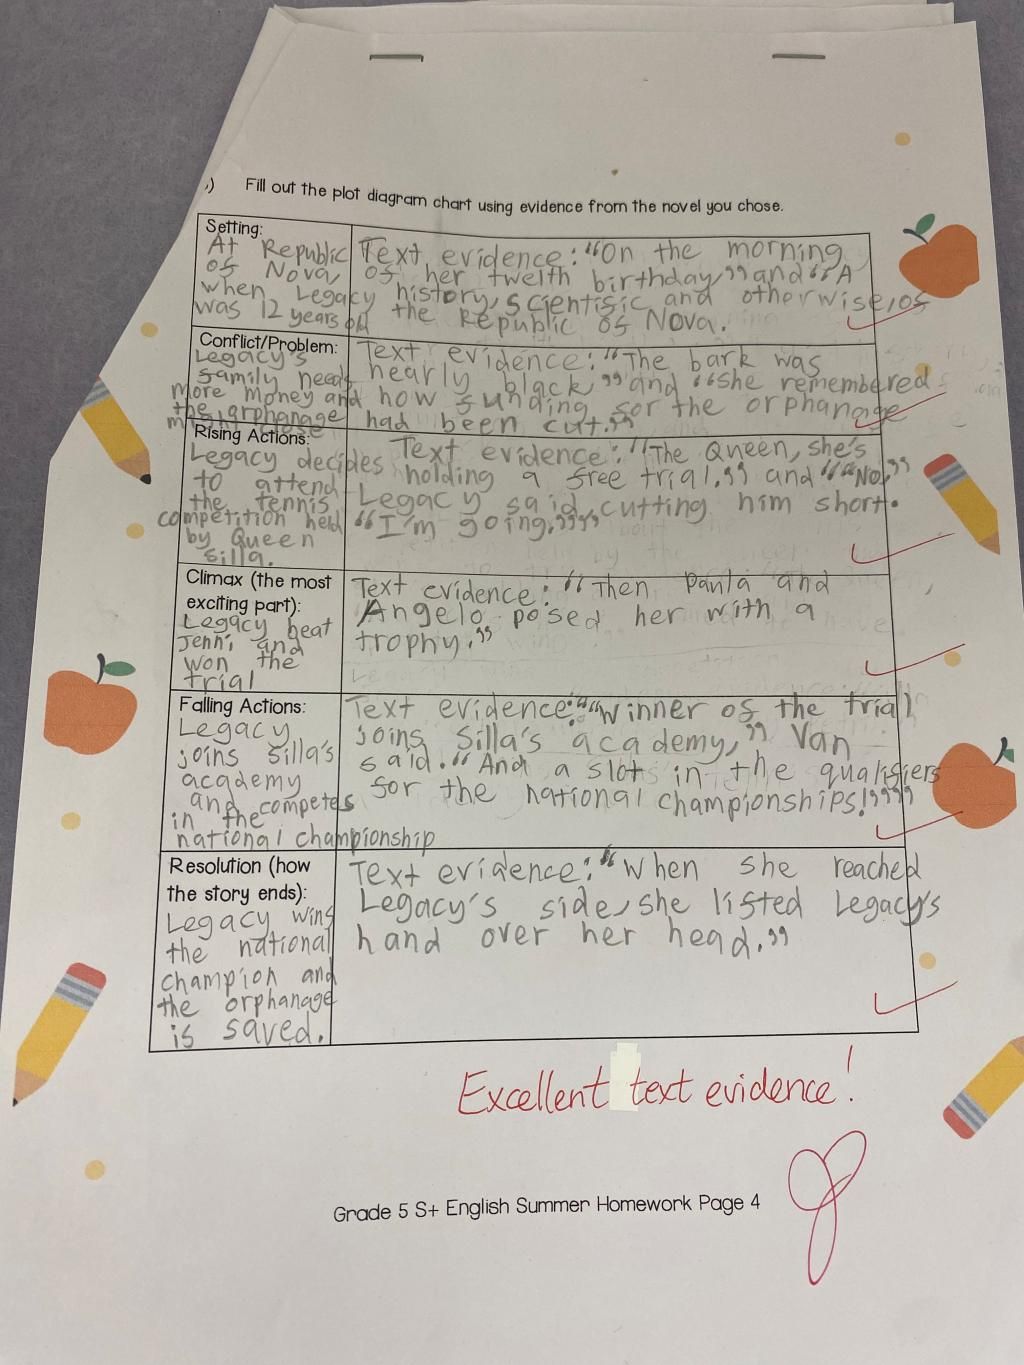 .) Fill out the plot diagram chart using evidence from the novel you chose.
Setting:
At Republic
of Nova,
when Legacy
was 12 years old
Text evidence: “On the morning
of her twelth birthday,” and “A
history, scientific and otherwise, of
the Republic of Nova.
Conflict/Problem:
Legacy's
family needs
more money and
the orphanage
might close
Text evidence: “The bark was
nearly black,” and “she remembered
how funding for the orphanage
had been cut.”
Rising Actions:
Legacy decides
to attend
the tennis
competition held
by Queen
Silla.
Text evidence: “The Queen, she's
holding a free trial.” and ““No,”
Legacy said, cutting him short.
“I'm going.””
Climax (the most
exciting part):
Legacy beat
Jenni and
won the
trial
Text evidence: “Then Paula and
Angelo posed her with a
trophy.”
Falling Actions:
Legacy
joins Silla's
academy
and competes
in the
national championship
Text evidence: ““Winner of the trial
joins Silla's academy,” Van
said. “And a slot in the qualifiers
for the national championships!””
Resolution (how
the story ends):
Legacy wins
the national
champion and
the orphanage
is saved.
Text evidence: “When she reached
Legacy's side, she lifted Legacy's
hand over her head.”
Excellent text evidence!
Grade 5 S+ English Summer Homework Page 4